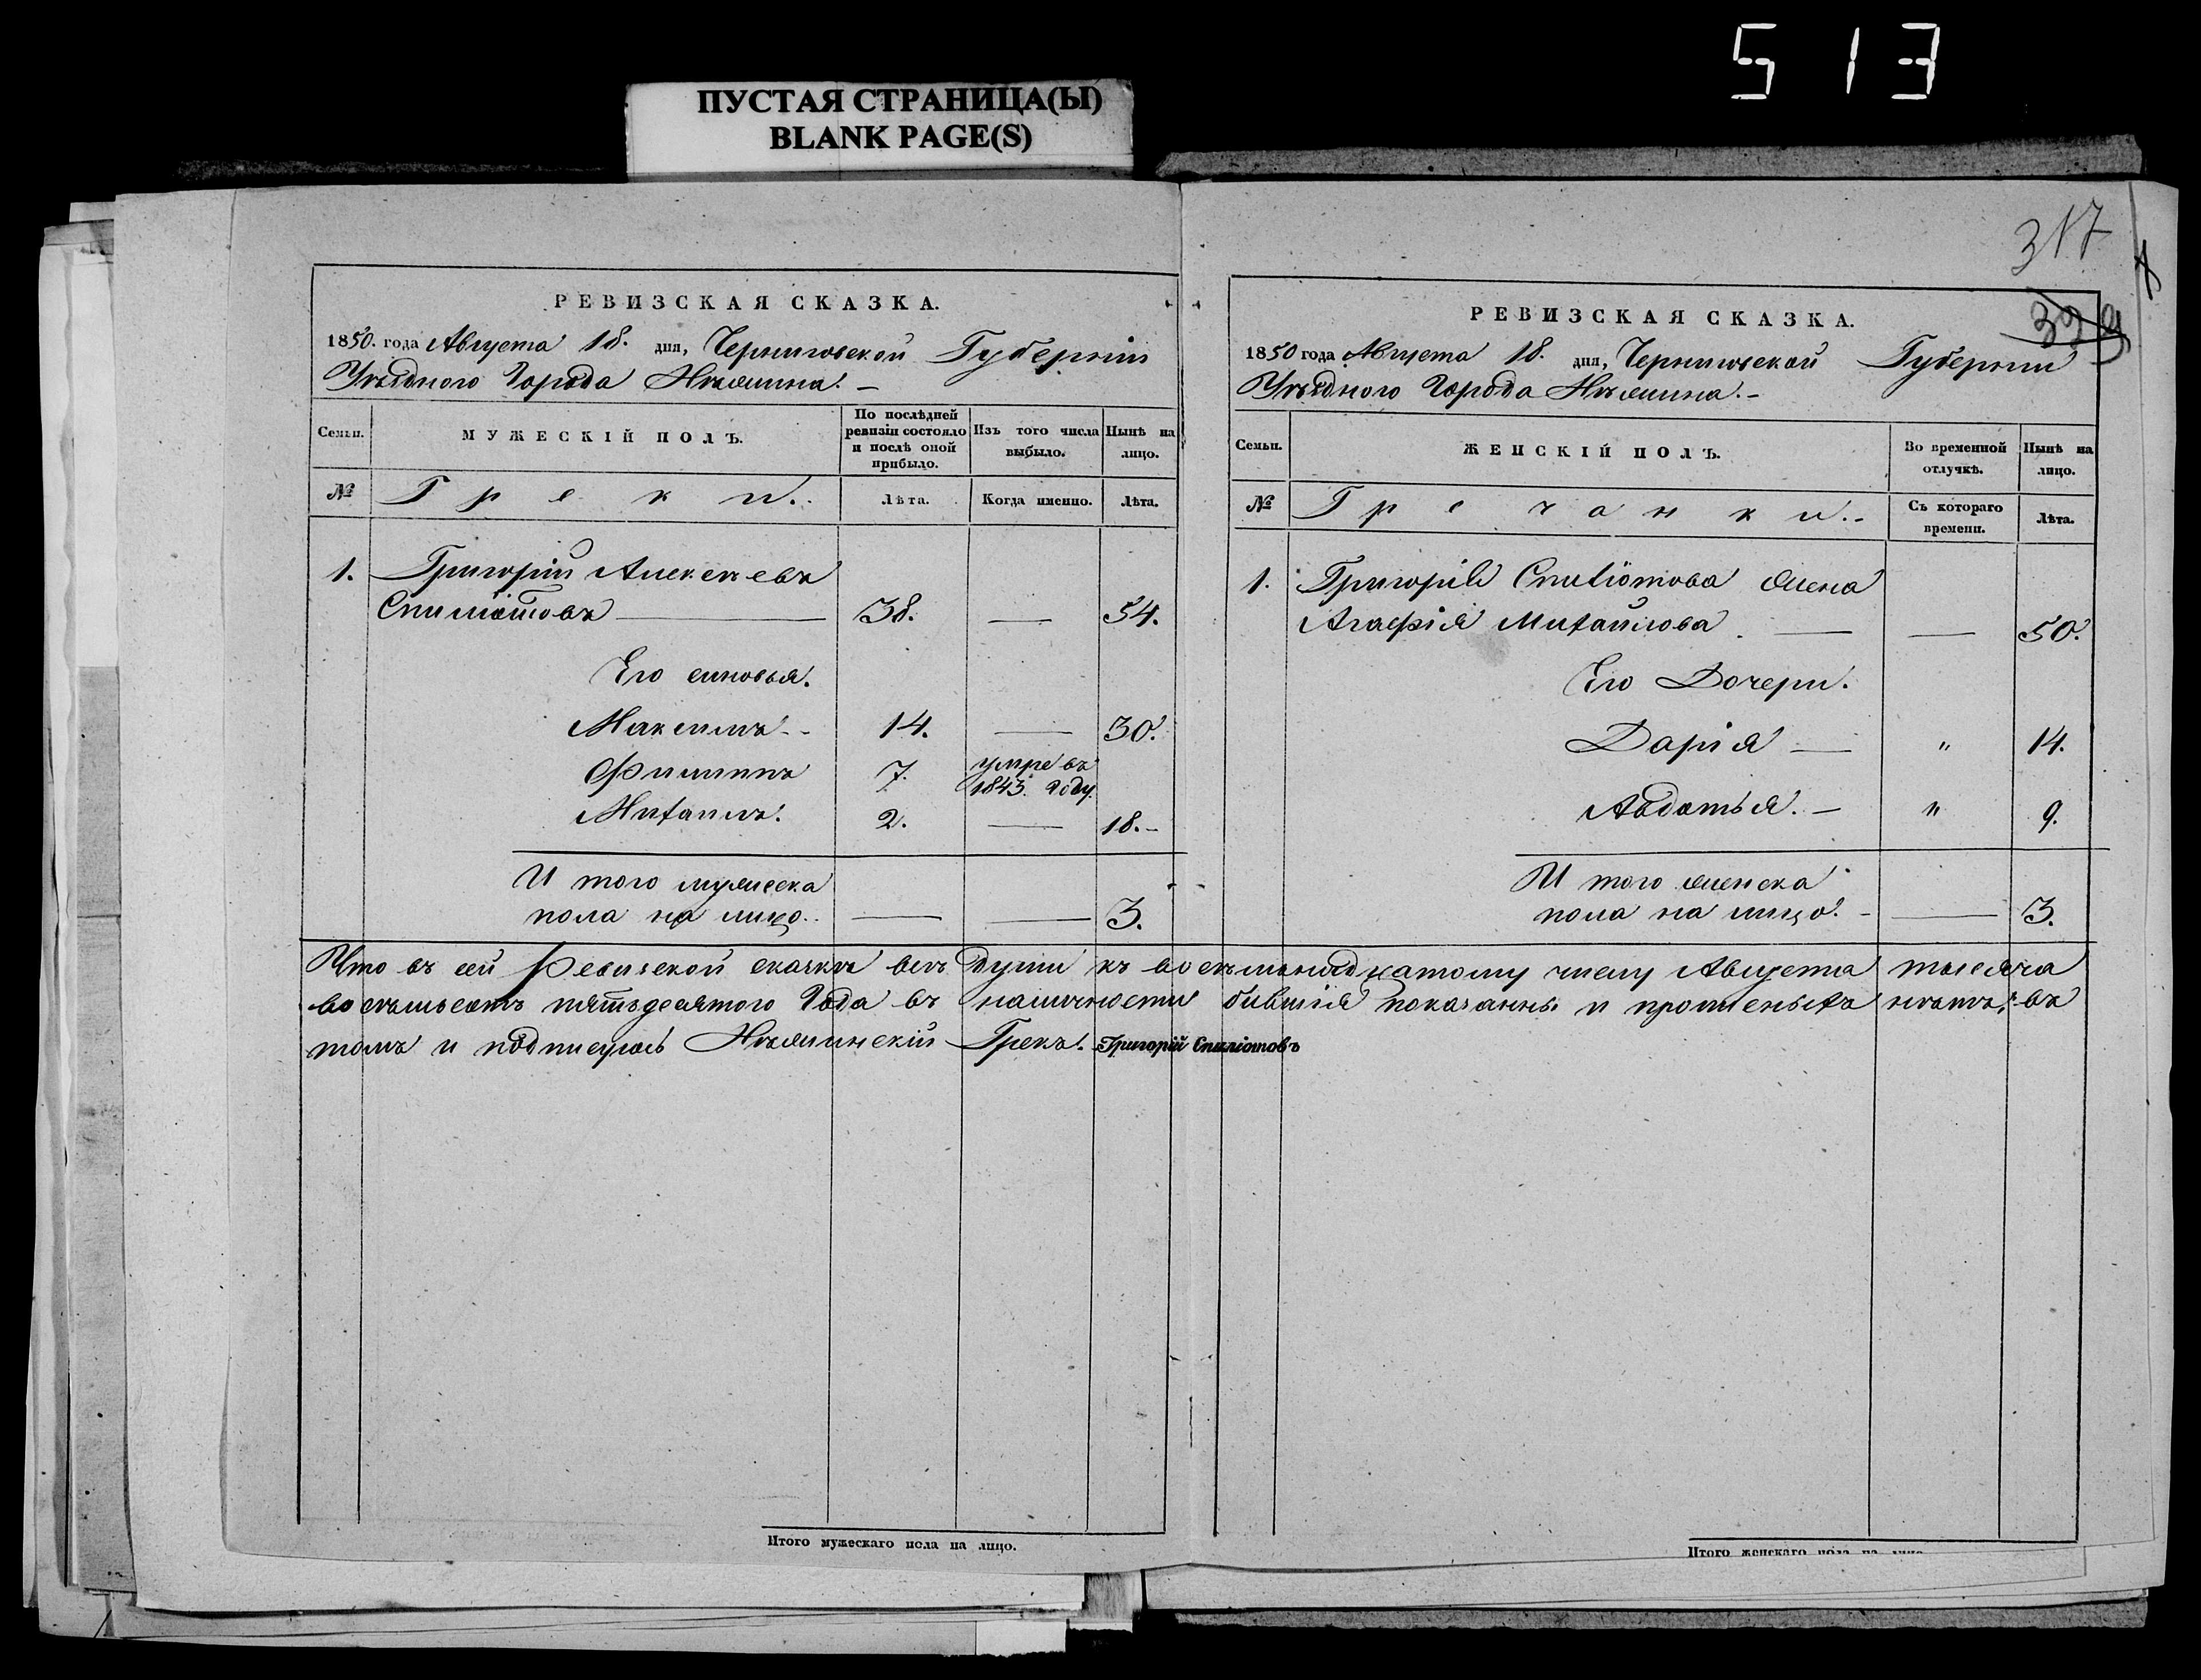 513
ПУСТАЯ СТРАНИЦА(Ы)
BLANK PAGE(S)
317
399
РЕВИЗСКАЯ СКАЗКА.
1850. года Августа 18. дня, Черниговской Губерніи
Уѣзднаго Города Нѣжина. –
Семьи.
МУЖЕСКІЙ ПОЛЪ.
По послѣдней ревизіи состояло и послѣ оной прибыло.
Изъ того числа выбыло.
Нынѣ на лицо.
№
Греки.
Лѣта.
Когда именно.
Лѣта.
1. Григорій Алексѣевъ
Спиліотовъ — 38. — 54.
Его синовья.
Максимъ - - 14. — 30.
Филиппъ 7. умре въ 1843. Году.
Михаилъ. 2. — 18. –
И того мужеска
пола на лицо. — — 3.
РЕВИЗСКАЯ СКАЗКА.
1850 года Августа 18. дня, Черниговской Губерніи
Уѣзднаго Города Нѣжина. –
Семьи.
ЖЕНСКІЙ ПОЛЪ.
Во временной отлучкѣ.
Нынѣ на лицо.
№
Гречанки. –
Съ котораго времени.
Лѣта.
1. Григорія Спиліотова жена
Агафія Михайлова. — — 50.
Его Дочери.
Дарія — " 14.
Авдотья. – " 9.
И того женска
пола на лицо. – — 3.
Что въ сей Ревизской сказкѣ всѣ Души къ восѣмьнадцатому числу Августа тысяча
восѣмьсотъ пятьдесятого Года въ наличности бившія показанны и прописныхъ нѣтъ, въ
томъ и подписуюсь Нѣжинскій Грекъ. Григорій Спиліотовъ
Итого мужескаго пола на лицо.
Итого женскаго пола на лицо